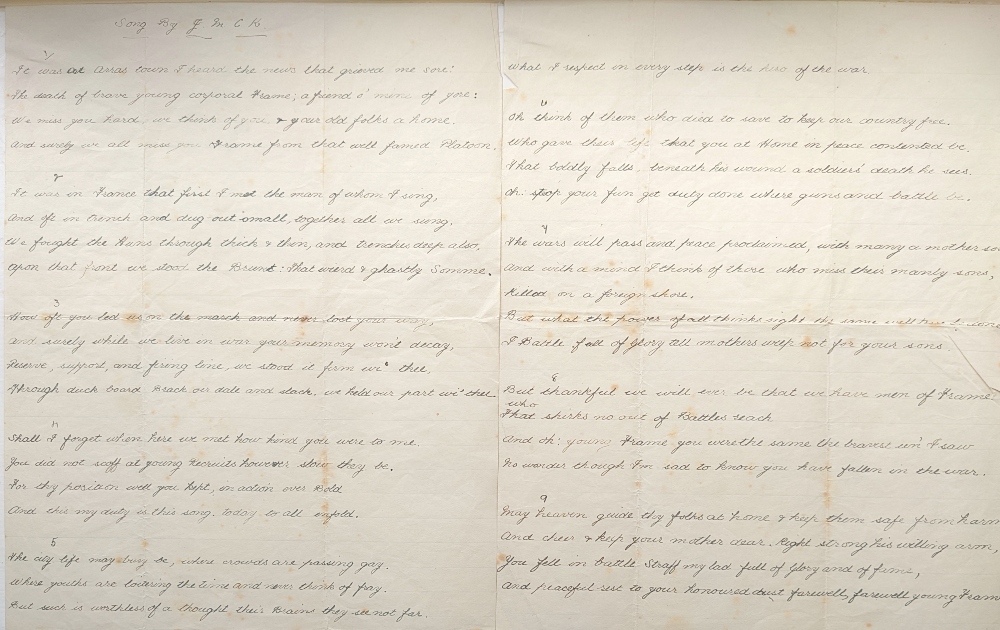 Song By J Mc C K
1/
It was at Arras town I heard the news that grieved me sore!
The death of brave young corporal Frame; a friend o' mine of yore:
We miss you hard, we think of you & your old folks a home.
And surely we all miss you Frame from that well famed Platoon.
2
It was in France that first I met the man of whom I sing,
And oft in trench and dug out small, together all we sung.
We fought the Huns through thick & then, and trenches deep also,
Upon that front we stood the Brunt: that weird & ghastly Somme.
3
How oft you led us on the march and never lost your way,
And surely while we live in war your memory won't decay,
Reserve, support, and fireing line, we stood it firm wi' thee.
Through duck board Brack our date and slack. we held our part wi' thee
4
Shall I forget when here we met how kind you were to me.
You did not scoff at young recruits however slow they be.
For thy position well you kept, in action over Bold
And this my duty is this song. today to all enfold.
5
The city life may busy be, where crowds are passing gay.
Where youths are loitering the time and never think of fray.
But such is worthless of a thought their Brains they see not far.
What I respect in every step is the hero of the war
6
Oh think of them who died to save to keep our country free.
Who gave their life that you at Home in peace contented be.
That boldly falls beneath his wound a soldiers' death he sees.
Oh: stop your fun get duty done where guns and battle be.
7
The wars will pass and peace proclaimed, with many a mother
And with a mind I think of those who miss their manly sons,
Killed on a foreign shore.
But what the power of all thinks right the same will
I Battle full of Glory all mothers weep not for your sons.
8
But thankful we will ever be that we have men of Frame
who
That shirks no out of Battles reach
And oh: young Frame you were the same the bravest un' I saw
No wonder though I'm sad to know you have fallen in the war.
9
May heaven guide thy folks at home & keep them safe from harm
And cheer & keep your mother dear. Right strong his willing arm,
You fell in battle Straff my lad full of Glory and of fame,
And peaceful rest to your honoured dust farewell, farewell young Fram